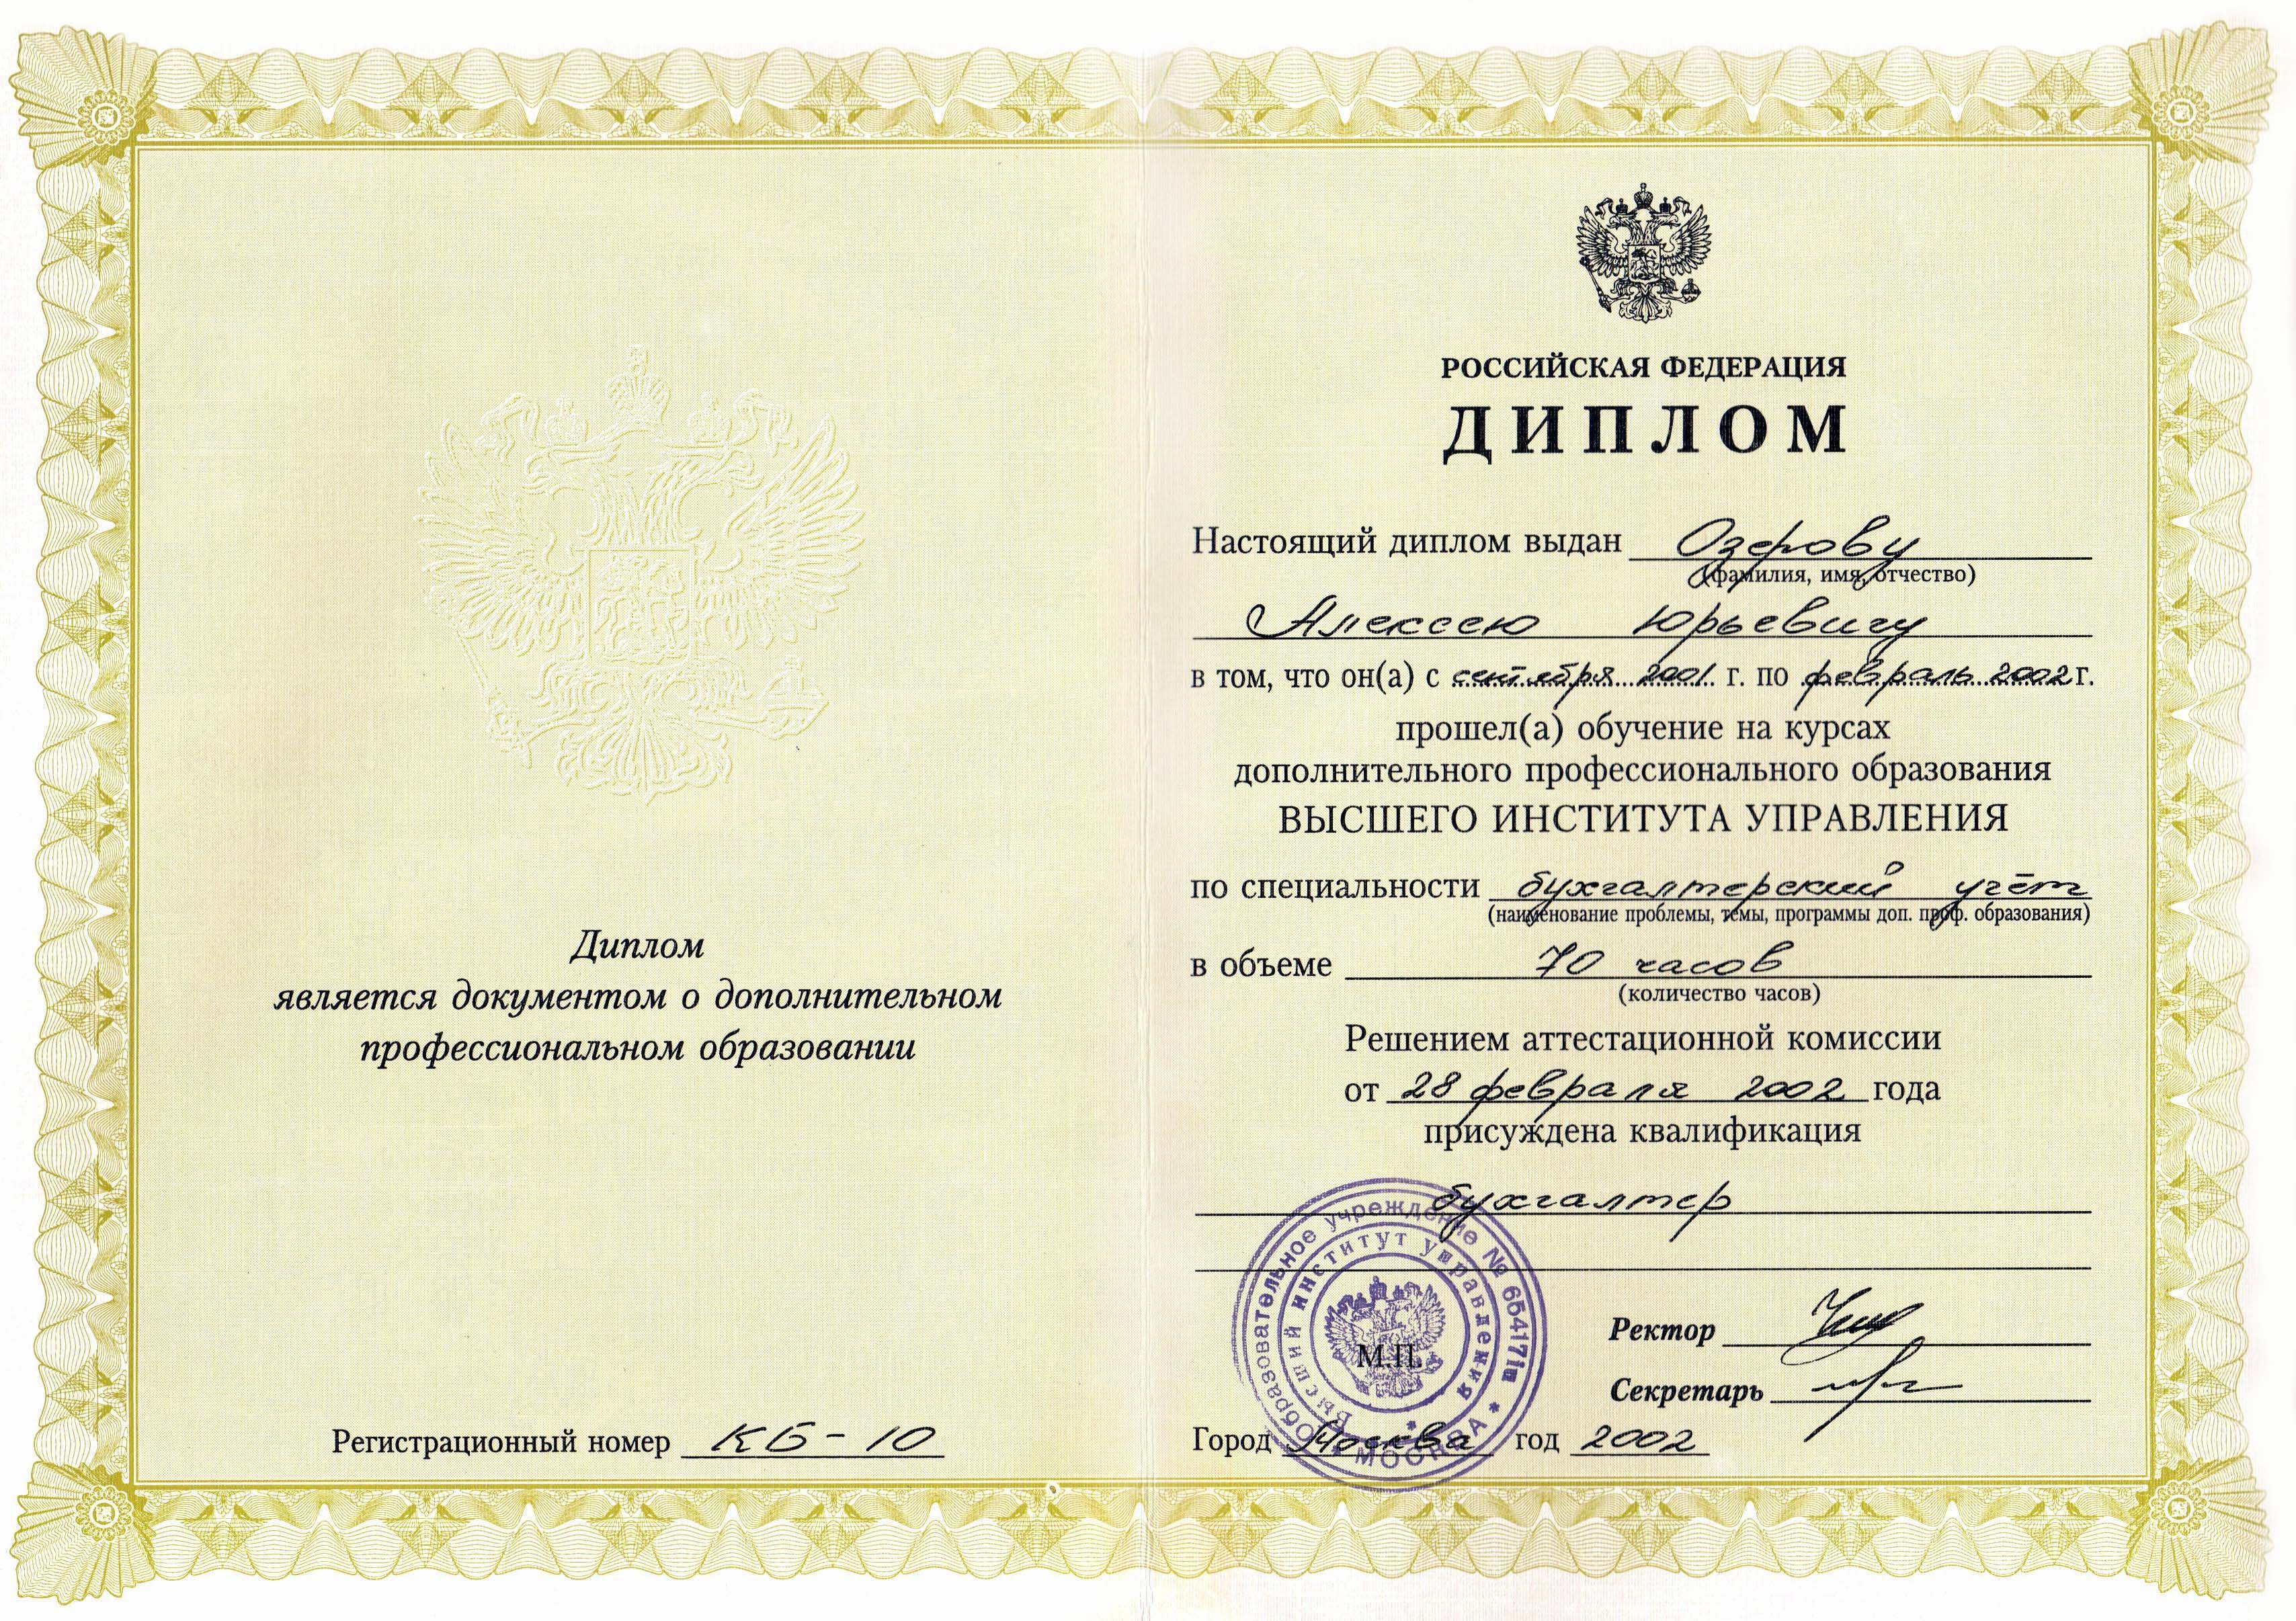 Диплом
является документом о дополнительном
профессиональном образовании
Регистрационный номер КБ-10
РОССИЙСКАЯ ФЕДЕРАЦИЯ
ДИПЛОМ
Настоящий диплом выдан Озерову
(фамилия, имя, отчество)
Алексею Юрьевичу
в том, что он(а) с сентября 2001 г. по февраль 2002 г.
прошел(а) обучение на курсах
дополнительного профессионального образования
ВЫСШЕГО ИНСТИТУТА УПРАВЛЕНИЯ
по специальности бухгалтерский учёт
(наименование проблемы, темы, программы доп. проф. образования)
в объеме 70 часов
(количество часов)
Решением аттестационной комиссии
от 28 февраля 2002 года
присуждена квалификация
бухгалтер
Образовательное учреждение №
Высший институт управления
* МОСКВА *
М.П.
Ректор
Секретарь
Город Москва год 2002